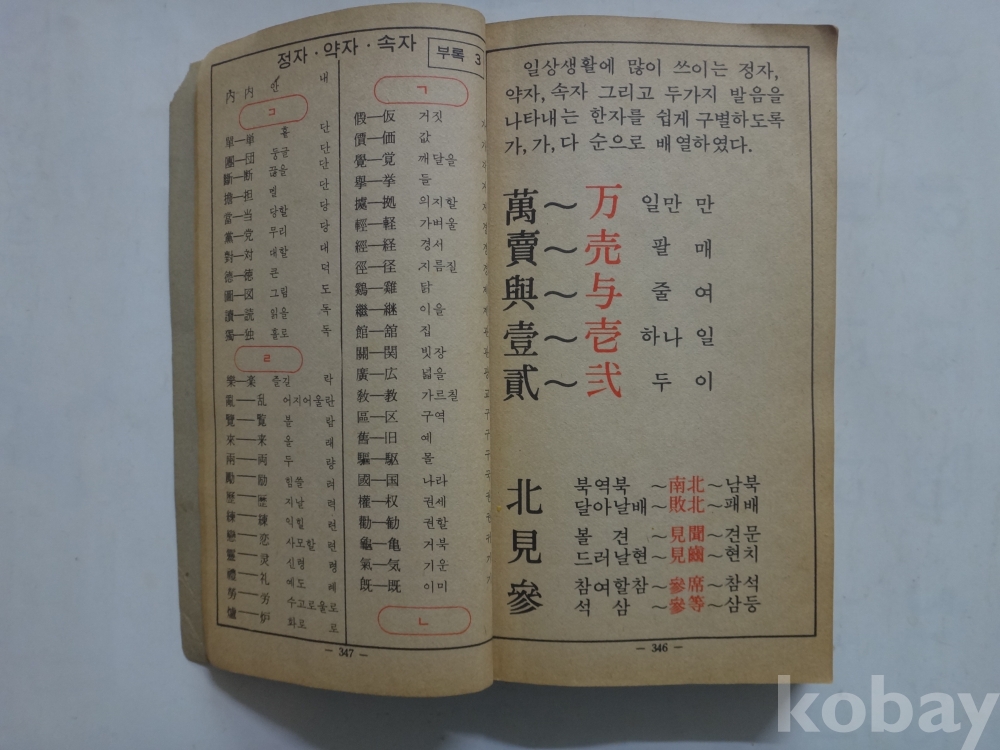 일상생활에 많이 쓰이는 정자,
약자, 속자 그리고 두가지 발음을
나타내는 한자를 쉽게 구별하도록
가, 가, 다 순으로 배열하였다.
萬～万 일만 만
賣～売 팔 매
與～与 줄 여
壹～壱 하나 일
貳～弐 두 이
北 북역북 ～南北～남북
달아날배～敗北～패배
見 볼 견 ～見聞～견문
드러날현～見齒～현치
參 참여할참～參席～참석
석 삼 ～參等～삼등
— 346 —
정자·약자·속자 부록 3
ㄱ
假—仮 거짓
價—価 값
覺—覚 깨달을
擧—挙 들
據—拠 의지할
輕—軽 가벼울
經—経 경서
徑—径 지름길
鷄—雞 닭
繼—継 이을
館—舘 집
關—関 빗장
廣—広 넓을
敎—教 가르칠
區—区 구역
舊—旧 예
驅—駆 몰
國—国 나라
權—权 권세
勸—勧 권할
龜—亀 거북
氣—気 기운
旣—既 이미
ㄴ
内 内 안 내
ㄷ
單—単 홑 단
團—団 둥글 단
斷—断 끊을 단
擔—担 멜 담
當—当 당할 당
黨—党 무리 당
對—対 대할 대
德—徳 큰 덕
圖—図 그림 도
讀—読 읽을 독
獨—独 홀로 독
ㄹ
樂—楽 즐길 락
亂—乱 어지어울란
覽—覧 볼 람
來—来 올 래
兩—両 두 량
勵—励 힘쓸 려
歷—歴 지날 력
練—練 익힐 련
戀—恋 사모할 련
靈—灵 신령 령
禮—礼 예도 례
勞—労 수고로울로
爐—炉 화로 로
— 347 —
kobay